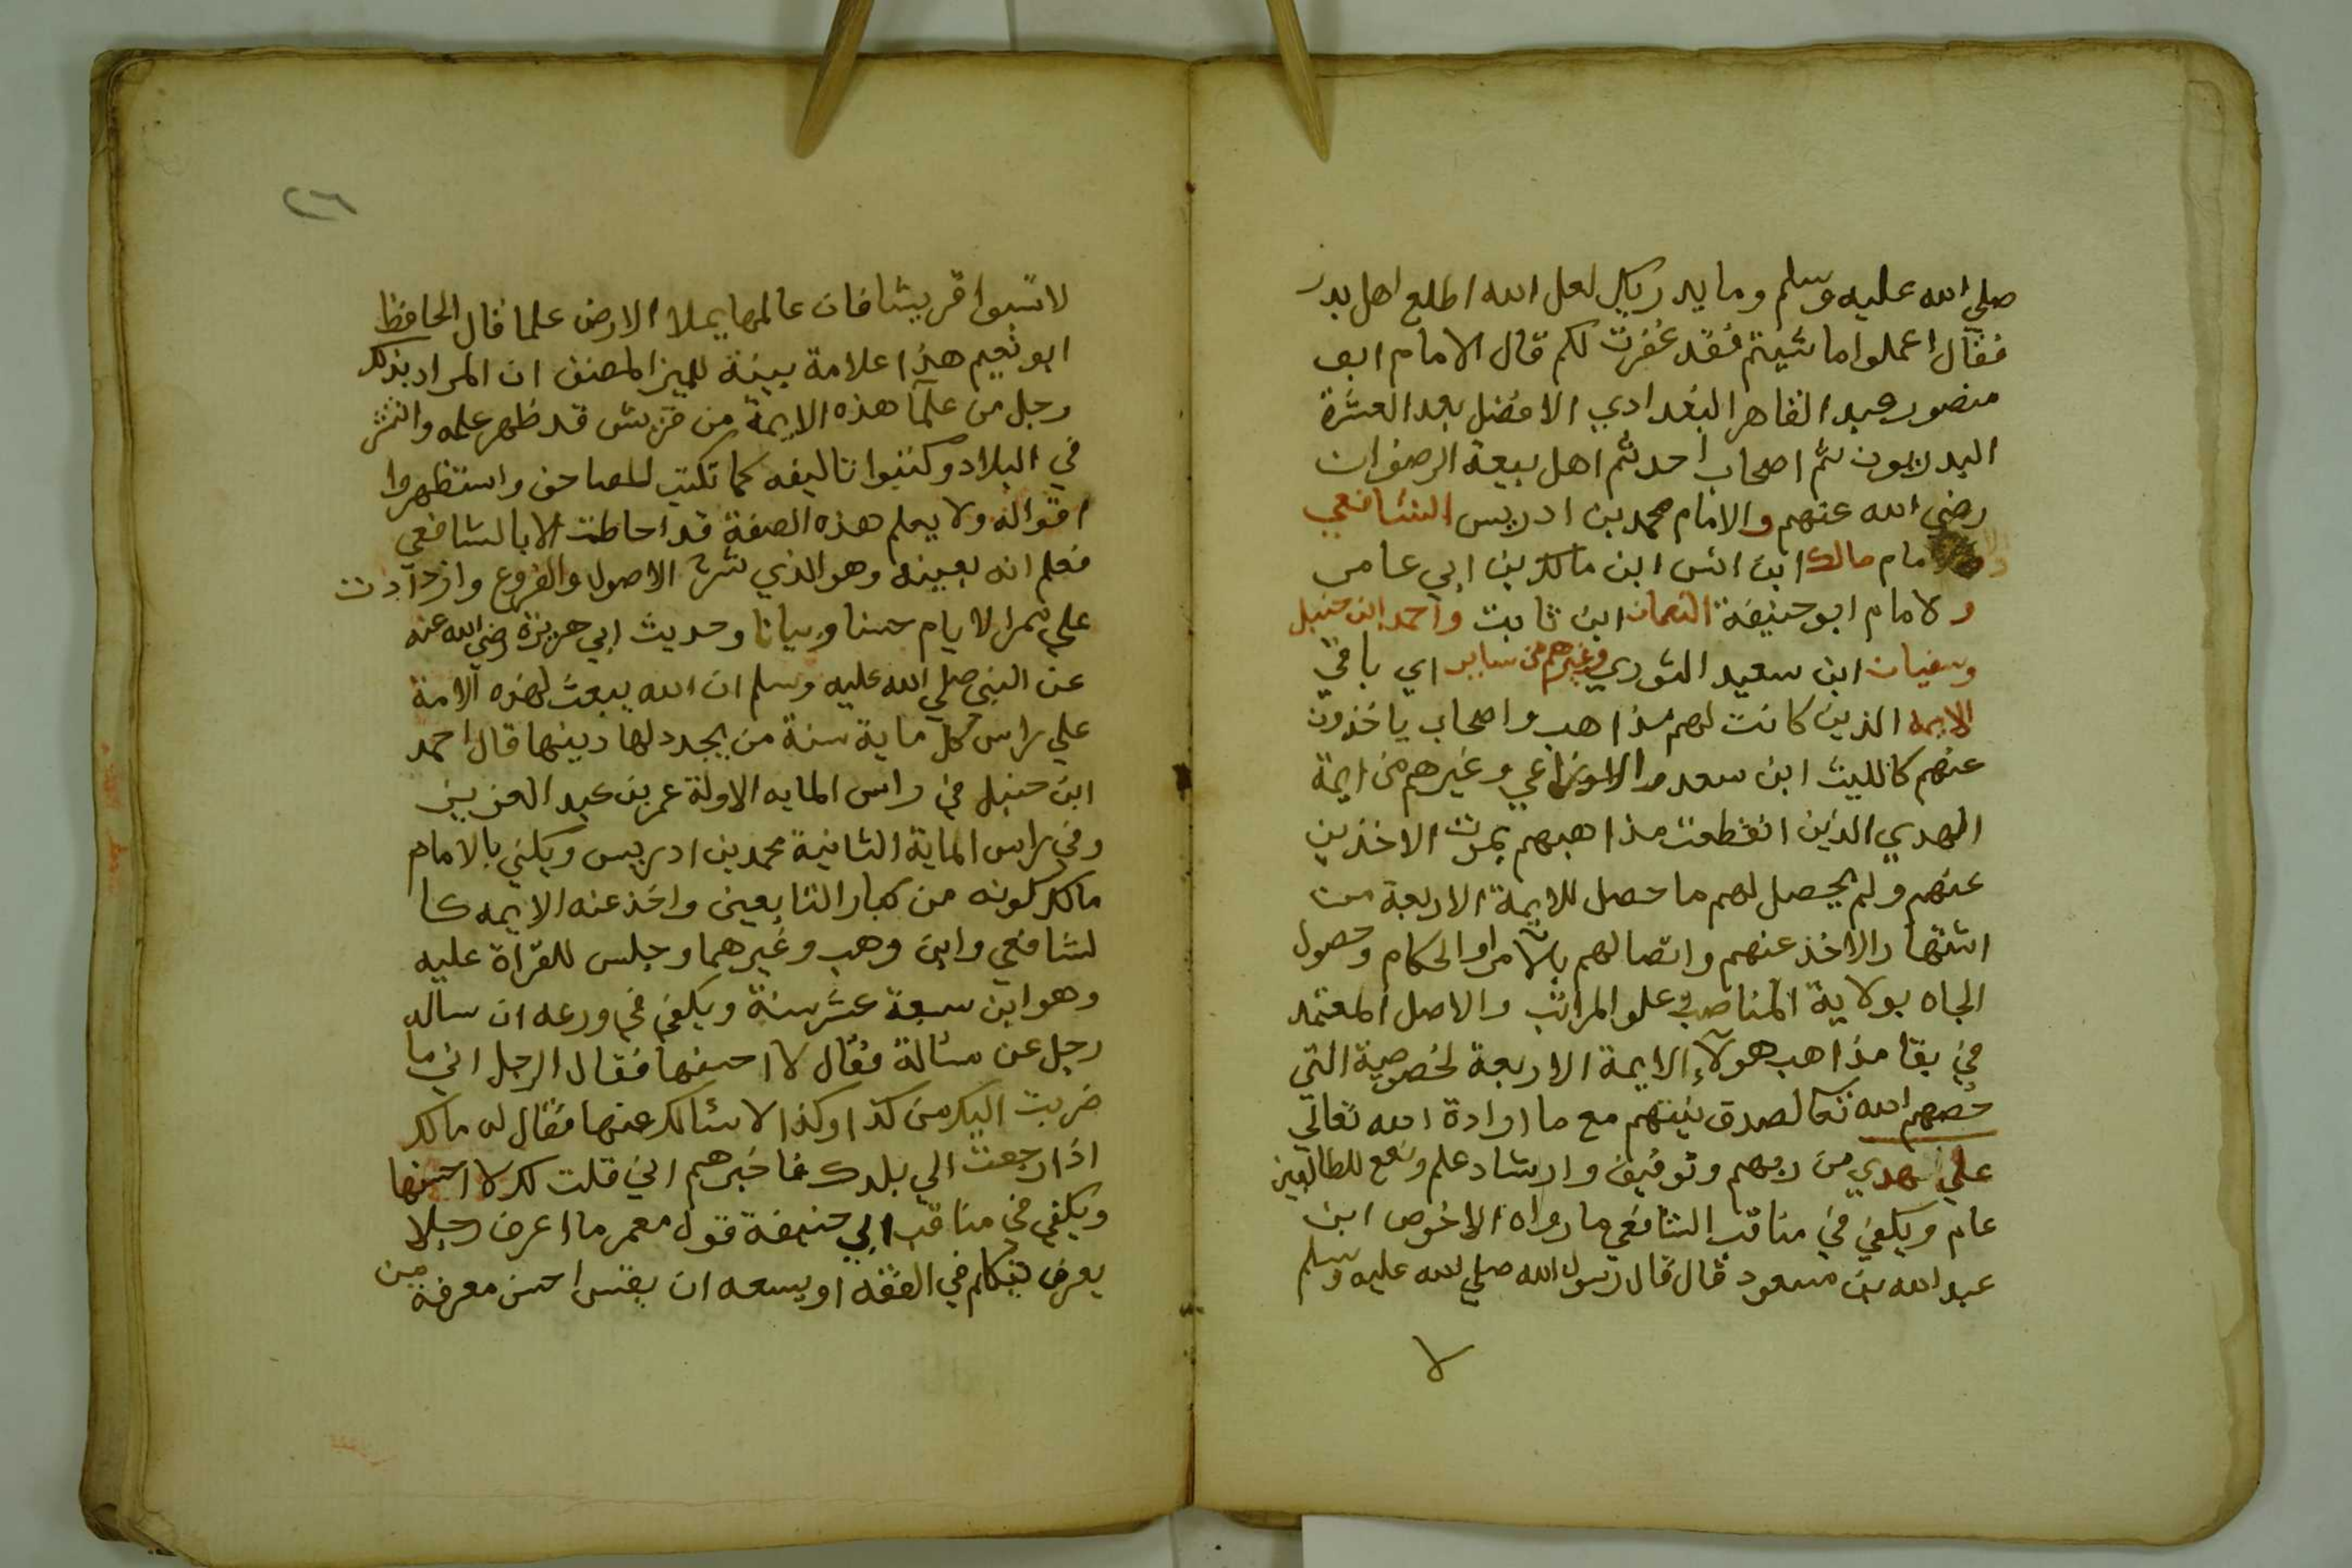 صلي الله عليه وسلم وما يدريك لعل الله اطلع اهل بدر
فقال اعملوا ما شيتم فقد غفرت لكم قال الامام ابو
منصور عبد القاهر البغدادي الافضل بعد العشرة
البدريون ثم اصحاب احد ثم اهل بيعة الرضوان
رضي الله عنهم والامام محمد بن ادريس الشافعي
والامام مالك ابن انس ابن مالك بن ابي عامر
ولامام ابو حنيفة النعمان ابن ثابت واحمد ابن حنبل
وسفيان ابن سعيد الثوري وغيرهم من ساير اي باقي
الايمة الذين كانت لهم مذاهب واصحاب ياخذون
عنهم كالليث ابن سعد والاوزاعي وغيرهم من ايمة
الهدي الذين انقطعت مذاهبهم بموت الاخذين
عنهم ولم يحصل لهم ما حصل للايمة الاربعة من
اشتهار الاخذ عنهم واتصالهم بالامراو الحكام وحصول
الجاه بولاية المناصب في علو المراتب والاصل المعتمد
في بقا مذاهب هولآء الايمة الاربعة لخصوصية التي
خصهم الله تعا لصدق نيتهم مع ما ارادة الله تعالي
علي هدي من ربهم وتوفيق وارشاد علم ونفع للطالبين
عام ويكفي في مناقب الشافعي ما رواه الاخوص ابن
عبد الله بن مسعود قال قال رسول الله صلي الله عليه وسلم
لا
٢٦
لا تسبوا قريشا فان عالمها يملا الارض علما قال الحافظ
ابو نعيم هذا علامة بينة للميز المصنف ان المراد بذلك
رجل من علمآ هذه الايمة من قريش قد ظهر علمه وانتشر
في البلاد وكتبوا تاليفه كما تكتب المصاحف واستظهروا
اقواله ولا يعلم هذه الصفة قد احاطت الا بالشافعي
فعلم انه بعينه وهو الذي شرح الاصول والفروع وازدادت
علي ممر الايام حسنا وبيانا وحديث ابي هريرة رضي الله عنه
عن النبي صلي الله عليه وسلم ان الله يبعث لهذه الامة
علي راس كل ماية سنة من يجدد لها دينها قال احمد
ابن حنبل في راس المايه الاولة عمر بن عبد العزيز
وفي راس الماية الثانية محمد بن ادريس ويكفي بالامام
مالك كونه من كبار التابعين واخذ عنه الايمه كا
لشافعي وابن وهب وغيرهما وجلس للقراة عليه
وهو ابن سبعة عشر سنة ويكفي في ورعه ان ساله
رجل عن مسالة فقال لا احسنها فقال الرجل اني ما
ضربت اليك من كذا وكذا الا سالك عنها فقال له مالك
اذا رجعت الي بلدك فاخبرهم اني قلت لك لا احسنها
ويكفي في مناقب ابي حنيفة قول معمر ما اعرف رجلا
يعرف يتكلم في الفقه او يسعه ان يقيس احسن معرفة من